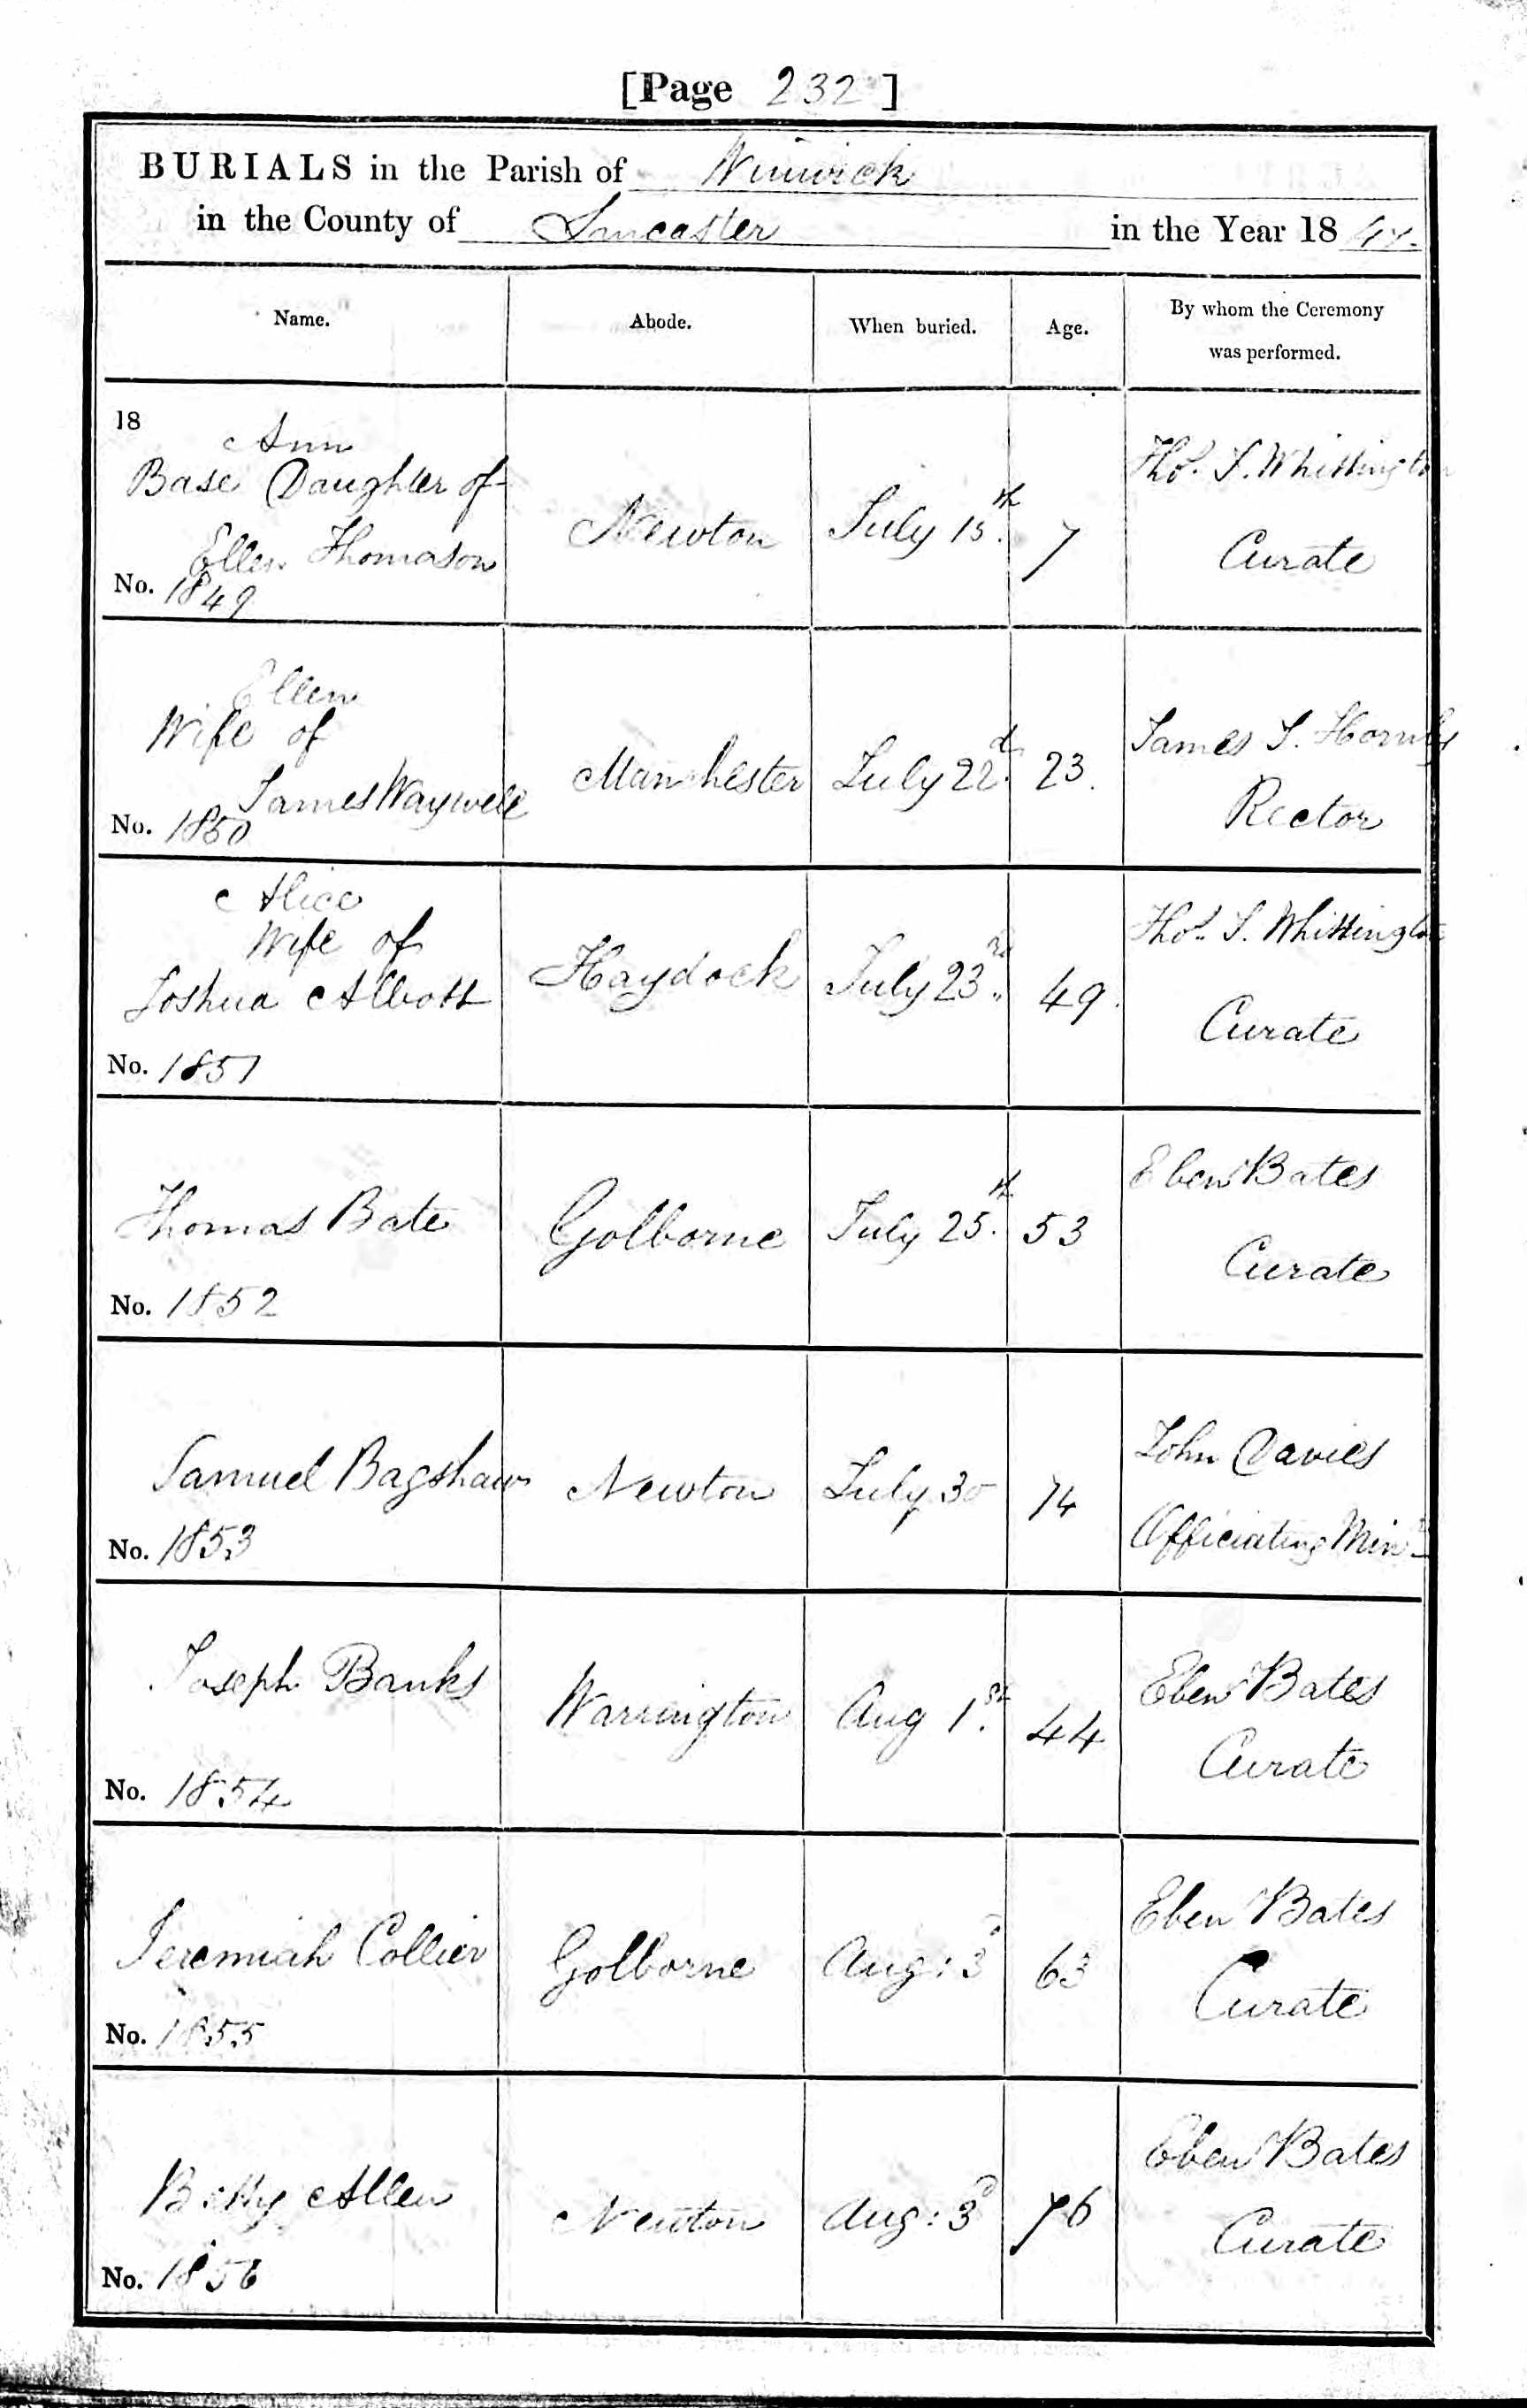 [Page 232]
BURIALS in the Parish of Winwick
in the County of Lancaster in the Year 1847.
Name. Abode. When buried. Age. By whom the Ceremony was performed.
18
Ann
Base Daughter of
Ellen Thomason
No. 1849
Newton
July 15th.
7
Thos. S. Whittington
Curate
Ellen
Wife of
James Waywell
No. 1850
Manchester
July 22d.
23.
James J. Hornby
Rector
Alice
Wife of
Joshua Abbott
No. 1851
Haydock
July 23rd.
49.
Thos. S. Whittington
Curate
Thomas Bate
No. 1852
Golborne
July 25th.
53
Eben Bates
Curate
Samuel Bagshaw
No. 1853
Newton
July 30
74
John Davies
Officiating Minr
Joseph Banks
No. 1854
Warrington
Aug 1st.
44
Eben Bates
Curate
Jeremiah Collier
No. 1855
Golborne
Aug: 3d
63
Eben Bates
Curate
Betty Allen
No. 1856
Newton
Aug: 3d
76
Eben Bates
Curate